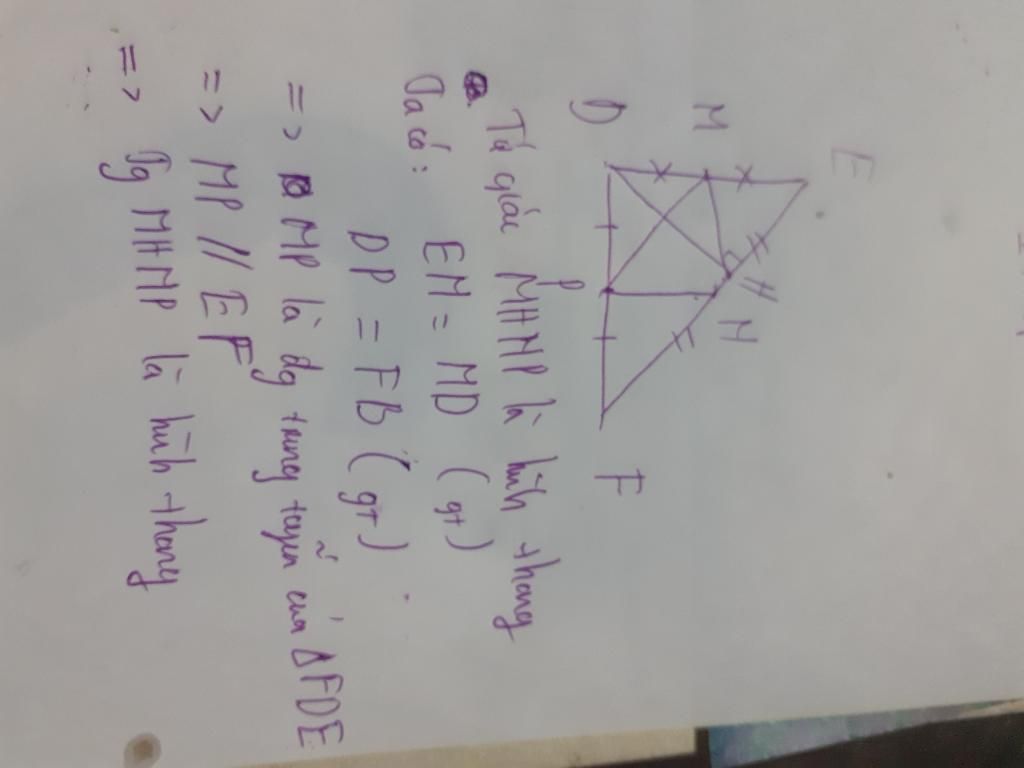 E
M
H
N
D
P
F
Tứ giác MHNP là hình thang
Ta có: EM = MD (gt)
DP = FB (gt)
=> MP là đg trung tuyến của ΔFDE
=> MP // EF
=> Tg MHMP là hình thang